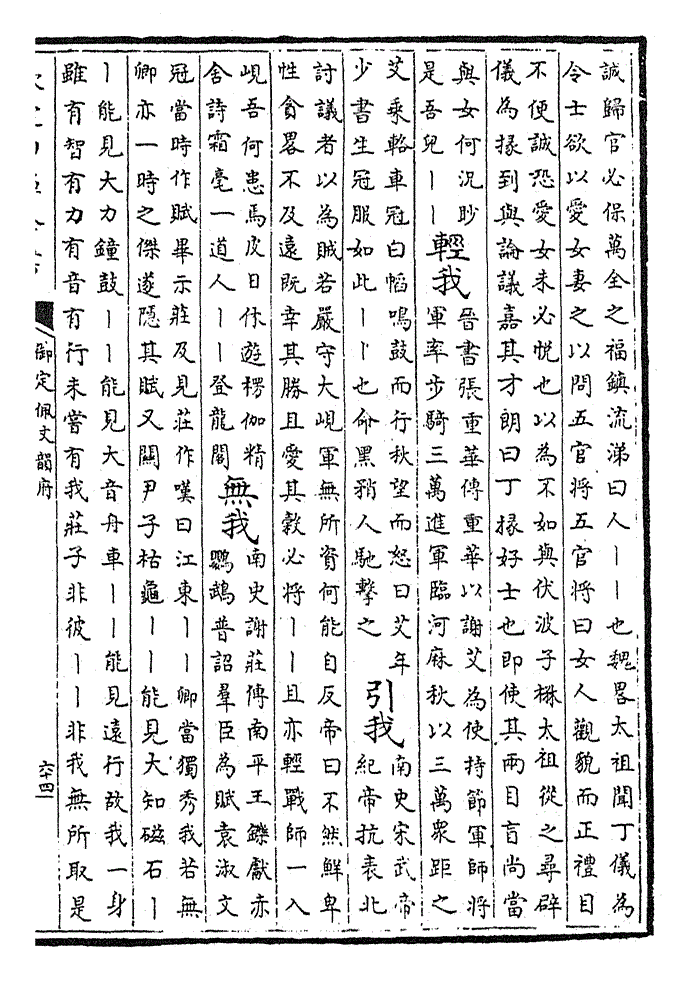 誠歸官必保萬全之福鎮流涕曰人丨丨也魏畧太祖聞丁儀為
令士欲以愛女妻之以問五官將五官將曰女人觀貌而正禮目
不便誠恐愛女未必悅也以為不如與伏波子楙太祖從之尋辟
儀為掾到與論議嘉其才朗曰丁掾好士也即使其兩目盲尚當
與女何況眇
是吾兒丨丨
輕我
晉書張重華傳重華以謝艾為使持節軍師將
軍率步騎三萬進軍臨河麻秋以三萬衆距之
艾乘軺車冠白幍鳴鼓而行秋望而怒曰艾年
少書生冠服如此丨丨也命黑矟人馳擊之
引我
南史宋武帝
紀帝抗表北
討議者以為賊若嚴守大峴軍無所資何能自反帝曰不然鮮卑
性貪畧不及遠既幸其勝且愛其穀必將丨丨且亦輕戰師一入
峴吾何患焉皮日休遊楞伽精
舍詩霜毫一道人丨丨登龍閣
無我
南史謝莊傳南平王鑠獻赤
鸚鵡普詔羣臣為賦袁淑文
冠當時作賦畢示莊及見莊作嘆曰江東丨丨卿當獨秀我若無
卿亦一時之傑遂隱其賦又關尹子枯龜丨丨能見大知磁石丨
丨能見大力鐘鼓丨丨能見大音舟車丨丨能見遠行故我一身
雖有智有力有音有行未嘗有我莊子非彼丨丨非我無所取是
御定佩文韻府
六十四